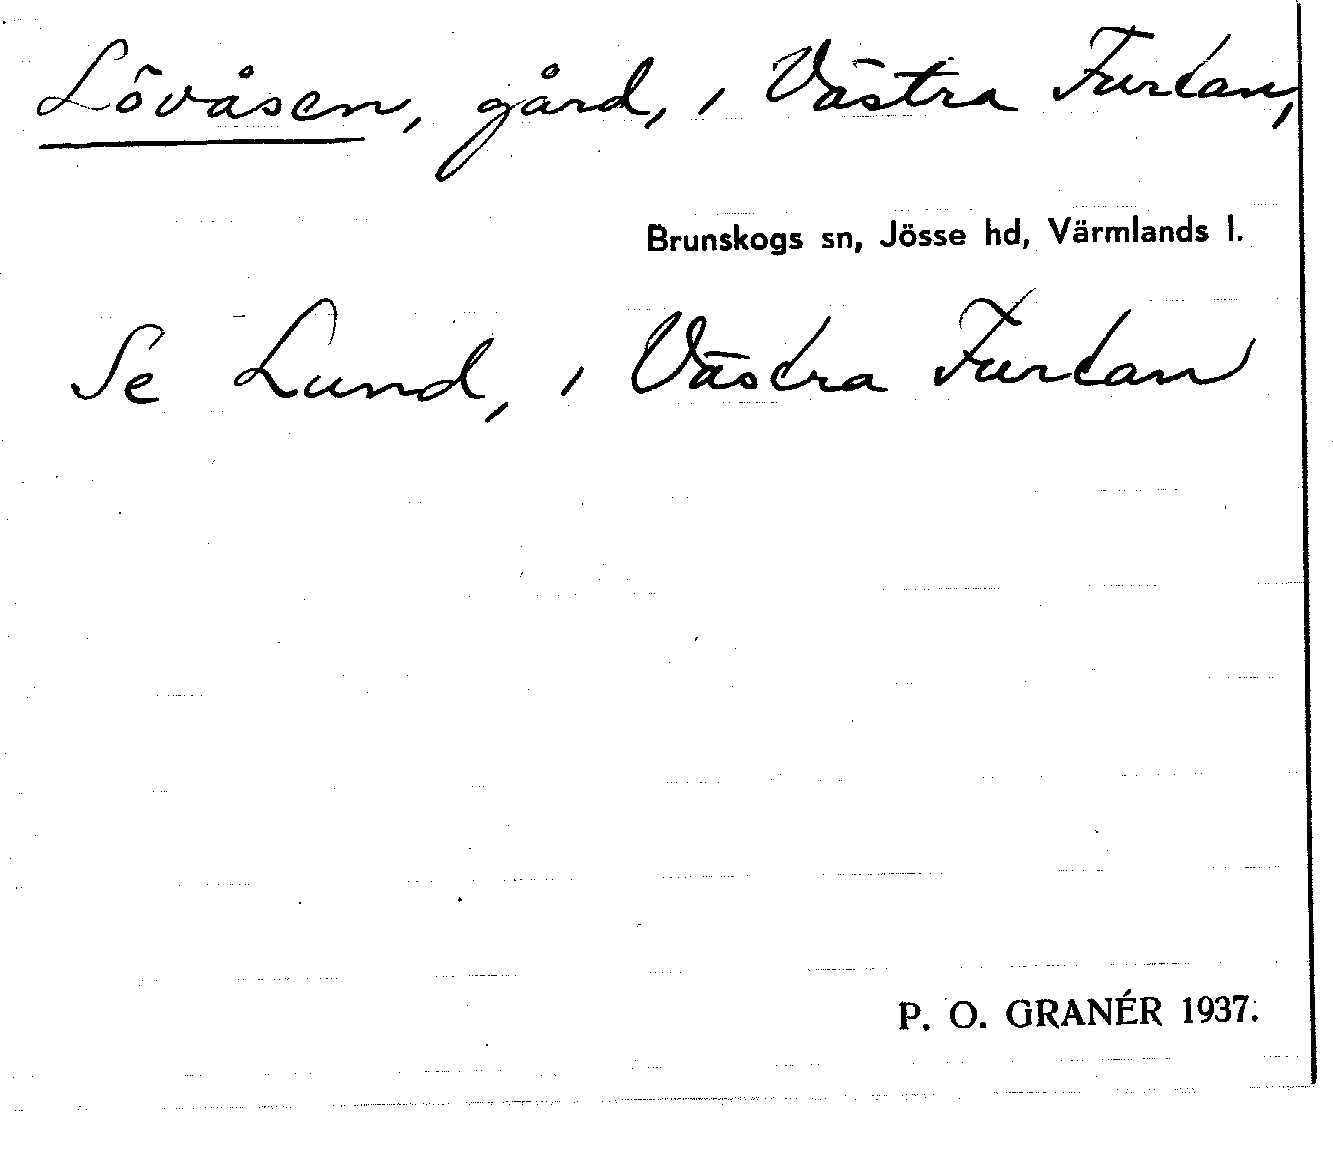 Lövåsen, gård, i Västra Furtan,
Brunskogs sn, Jösse hd, Värmlands l.
Se Lund, i Västra Furtan
P. O. GRANÉR 1937.